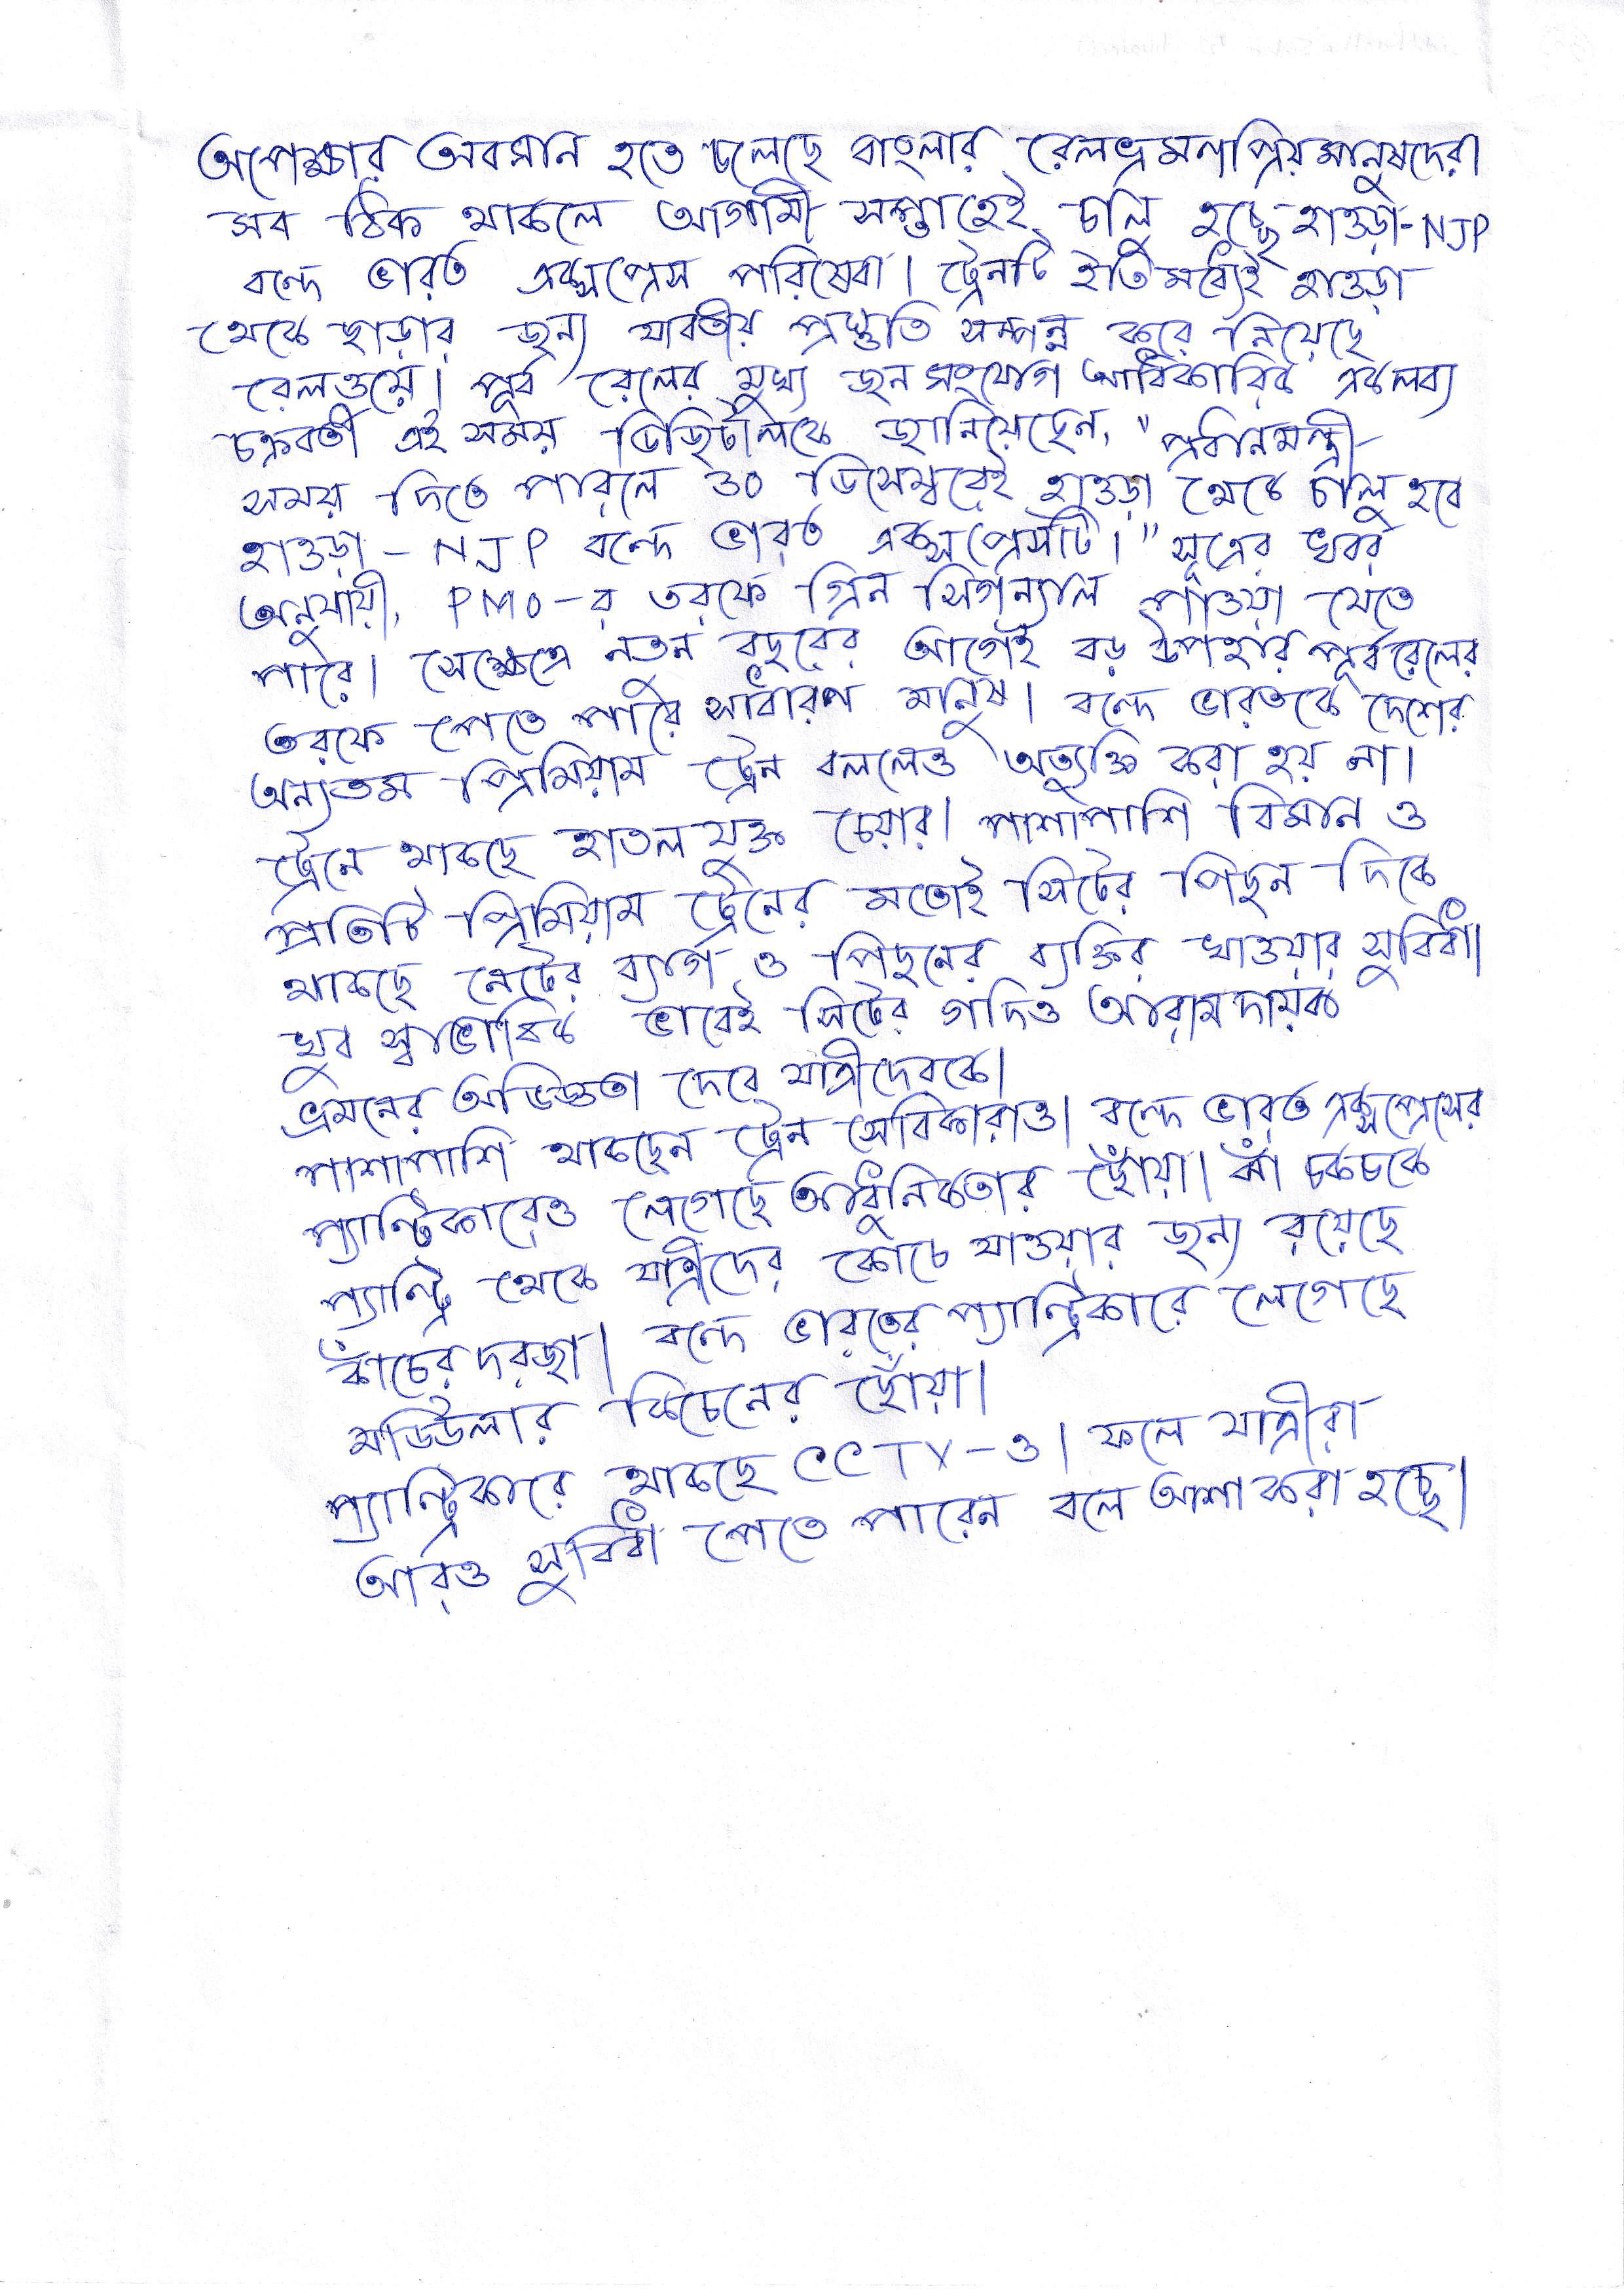 অপেক্ষার অবসান হতে চলেছে বাংলার রেলভ্রমণপ্রিয় মানুষদের।
সব ঠিক থাকলে আগামী সপ্তাহেই চালু হচ্ছে হাওড়া-NJP
বন্দে ভারত এক্সপ্রেস পরিষেবা। ট্রেনটি ইতিমধ্যেই হাওড়া
থেকে ছাড়ার জন্য যাবতীয় প্রস্তুতি সম্পন্ন করে নিয়েছে
রেলওয়ে। পূর্ব রেলের মুখ্য জনসংযোগ আধিকারিক একলব্য
চক্রবর্তী এই সময় ডিজিটালকে জানিয়েছেন, "প্রধানমন্ত্রী
সময় দিতে পারলে ৩০ ডিসেম্বরেই হাওড়া থেকে চালু হবে
হাওড়া - NJP বন্দে ভারত এক্সপ্রেসটি।" সূত্রের খবর
অনুযায়ী, PMO-র তরফে গ্রিন সিগন্যাল পাওয়া যেতে
পারে। সেক্ষেত্রে নতুন বছরের আগেই বড় উপহার পূর্বরেলের
তরফে পেতে পারে সাধারণ মানুষ। বন্দে ভারতকে দেশের
অন্যতম প্রিমিয়াম ট্রেন বললেও অত্যুক্তি করা হয় না।
ট্রেনে থাকছে হাতল যুক্ত চেয়ার। পাশাপাশি বিমান ও
প্রতিটি প্রিমিয়াম ট্রেনের মতোই সিটের পিছন দিকে
থাকছে নেটের ব্যাগ ও পিছনের ব্যক্তির খাওয়ার সুবিধা।
খুব স্বাভাবিক ভাবেই সিটের গদিও আরামদায়ক
ভ্রমনের অভিজ্ঞতা দেবে যাত্রীদেরকে।
পাশাপাশি থাকছেন ট্রেন সেবিকারাও। বন্দে ভারত এক্সপ্রেসের
প্যান্ট্রিকারেও লেগেছে আধুনিকতার ছোঁয়া। ঝাঁ চকচকে
প্যান্ট্রি থেকে যাত্রীদের কোচে যাওয়ার জন্য রয়েছে
কাঁচের দরজা। বন্দে ভারতের প্যান্ট্রিকারে লেগেছে
মডিউলার কিচেনের ছোঁয়া।
প্যান্ট্রিকারে থাকছে CCTV-ও। ফলে যাত্রীরা
আরও সুবিধা পেতে পারেন বলে আশা করা হচ্ছে।